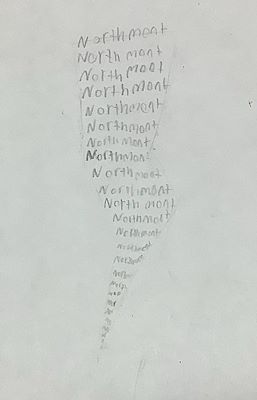 Northmont
North mont
North mont
Northmont
Northmont
Northmont
Northmont
Northmont
Northmont
Northmont
North mont
Northmont
Northmont
Northmont
Northmont
North
North